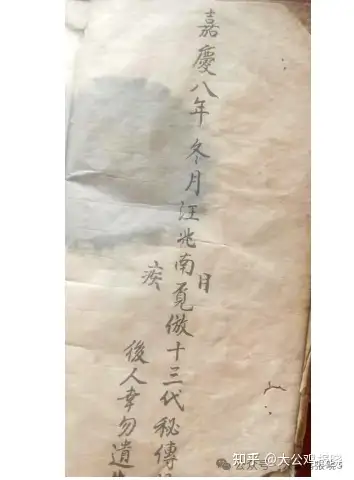 嘉慶八年冬月汪兆南覔倣十三代秘傳
月
後人幸勿遺
知乎 @大公鸡
公众号